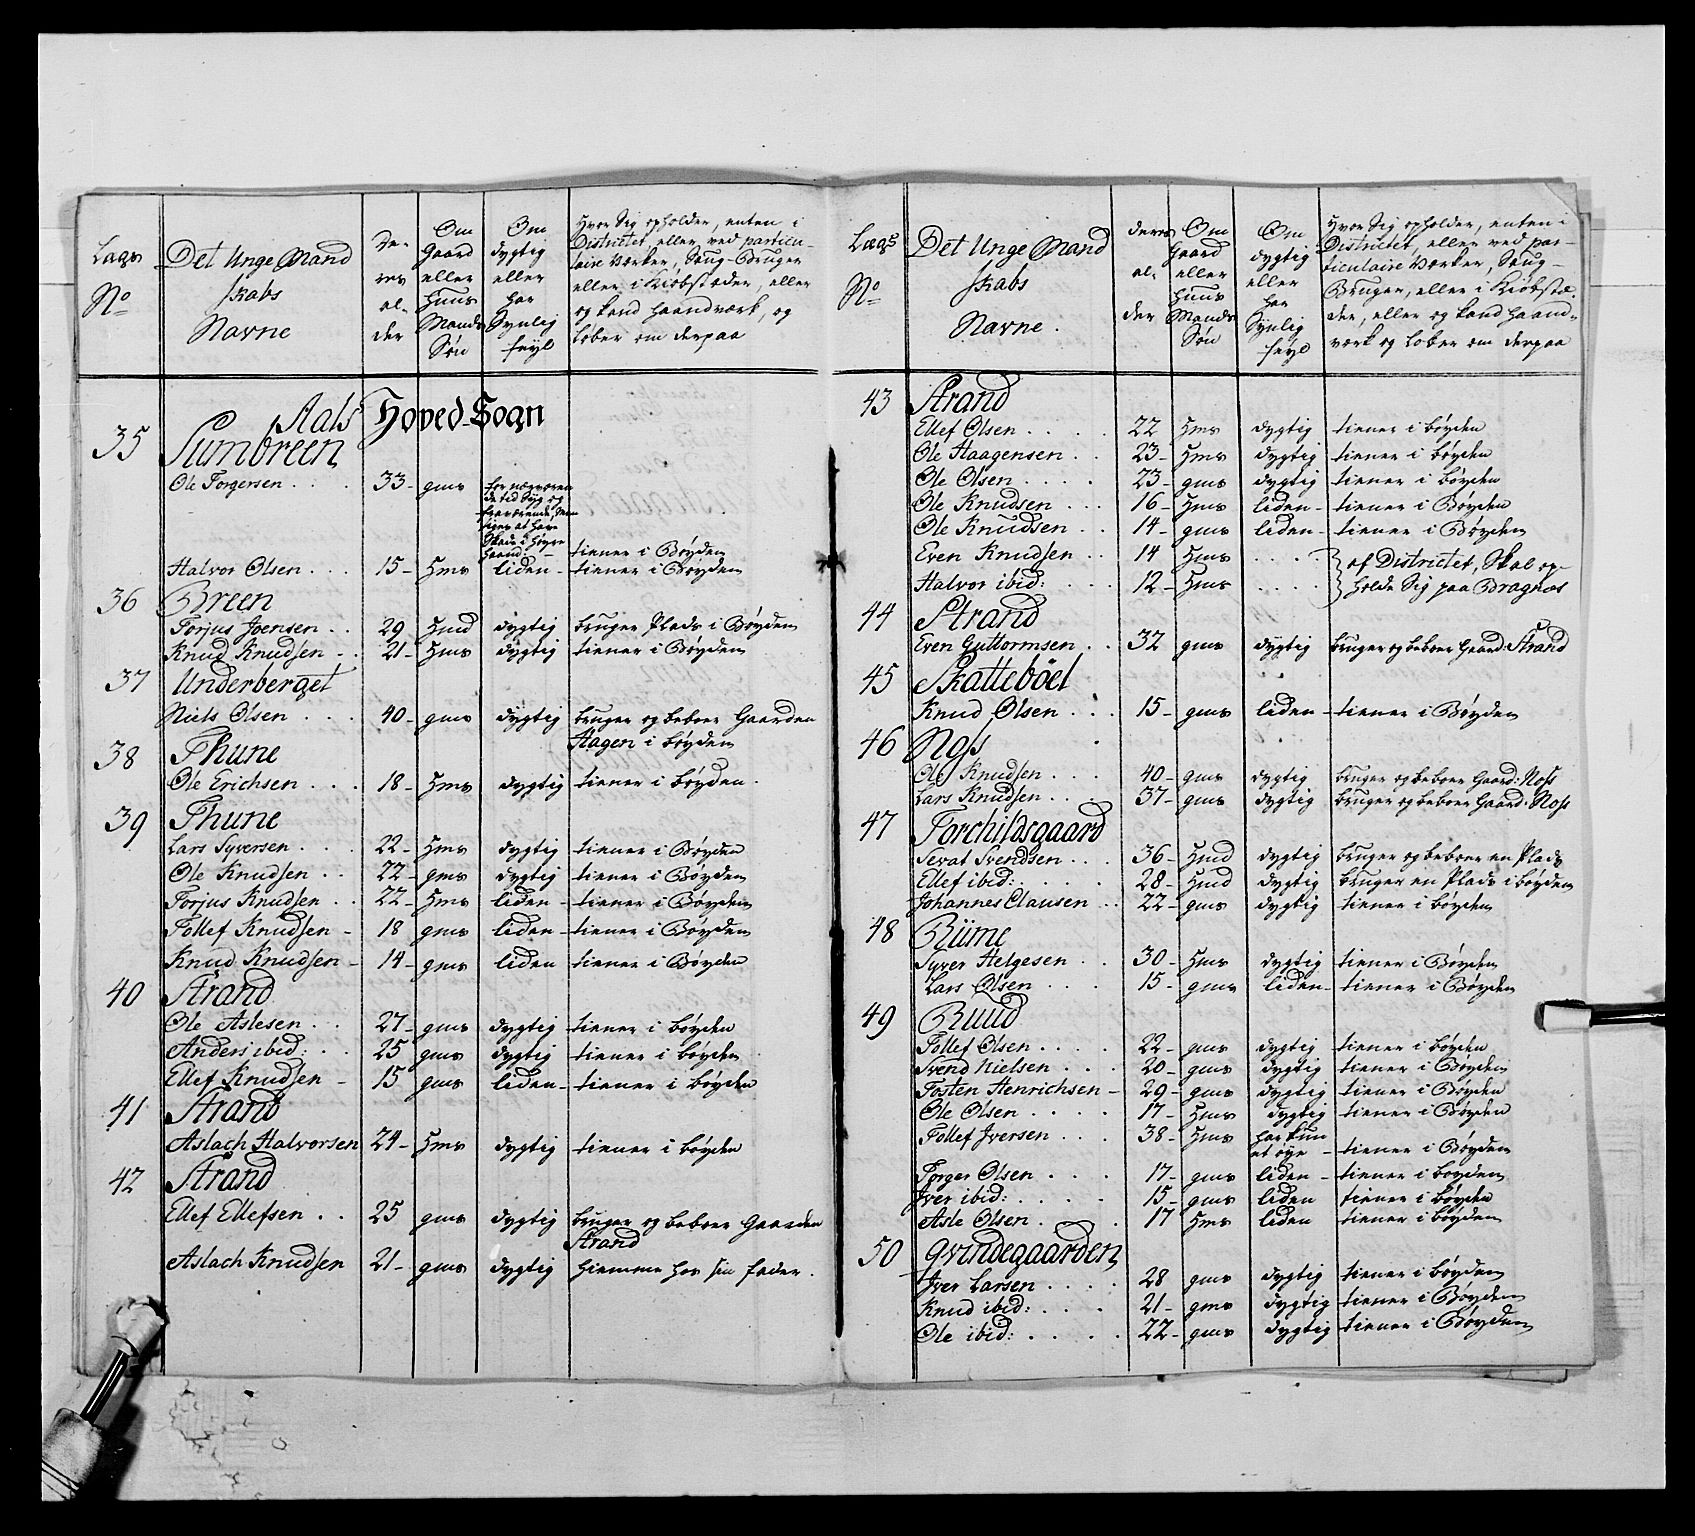 Lags No
Det Unge Mand skabs Navne
De- res al- der
Om Gaard eller Huus Mands Søn
Om dygtig eller har Synlig feyl
Hvor Sig opholder, enten i
Districtet, eller ved particu-
laire Værker, Saug-Bruger
eller i Kiøbstæder, eller
og kand haandværk, og
løber om derpaa
Aals Hoved-Sogn
35 Sumbreen
for nærværen
de tid Syg og
Skade i Høyre
haand. -
Ole Torgersen . . . 33- gms tiener i Bøyden
Halvor Olsen . . . 15- Hms liden- tiener i Bøyden
36 Breen
Torjus Joensen . . 29 Hmd dygtig bruger Plads i Bøyden
Knud Knudsen - . 21- Hms dygtig tiener i Bøyden
37 Underberget
Niels Olsen . . . 40- gms dygtig bruger og beboer Gaarden
Hagen i bøyden
38 Thune
Ole Erichsen . . . 18- Hms dygtig tiener i bøyden.
39 Thune
Lars Syversen . . . 22- Hms dygtig tiener i Bøyden
Ole Knudsen . . 22- gms dygtig tiener i Bøyden
Torjus Knudsen . . 22- Hms liden- tiener i Bøyden
Tollef Knudsen - 18 gms liden- tiener i Bøyden
Knud Knudsen - 14- gms liden tiener i Bøyden
40 Strand
Ole Aslesen . . . 27- gms dygtig tiener i bøyden
Anders ibid: . . 25 gms dygtig tiener i bøyden
Ellef Knudsen - 15 gms liden- tiener i bøyden
41 Strand
Aslach Halvorsen 24- Hms dygtig tiener i bøyden
42 Strand
Ellef Ellefsen . . 25 gms dygtig bruger og beboer Gaarden
Strand
Aslach Knudsen 21- gms dygtig hiemme hos sin fader.
Lægs No
Det Unge Mand skabs Navne.
deres al- der
Om Gaard eller Huus Mands Søn
Om dygtig eller har Synlig feyl
Hvor Sig opholder, enten i
Districtet, eller ved par-
ticulaire Værker, Saug-
Bruger, eller i Kiøbstæ-
der, eller og kand haand-
værk og løber om derpaa
43 Strand
Ellef Olsen . . . . 22 Hms dygtig tiener i bøyden
Ole Haagensen . . 23- Hms dygtig tiener i bøyden
Ole Olsen . . . . 23- gms dygtig tiener i bøyden
Ole Knudsen . . . 16- Hms liden- tiener i Bøyden
Ole Knudsen . . 14- gms liden- tiener i Bøyden
Even Knudsen . . 14 Hms . . . . af Districtet, Skal op-
Halvor ibid: . . . 12- Hms . . . . holde Sig paa Bragnæs
44 Strand
Even Guttormsen . . 32 gms dygtig bruger og beboer Gaard: Strand
45 Skattebøel
Knud Olsen . . . 15- gms liden- tiener i Bøyden
46 Noss
Ole Knudsen . . . 40- gms dygtig bruger og beboer Gaard: Noss
Lars Knudsen . . . 37- gms dygtig bruger og beboer Gaard: Noss
47 Torchildsgaard
Sevat Svendsen . . . 36- Hmd dygtig bruger og beboer en Plads
Ellef ibid: . . . . 28- Hmd dygtig bruger en Plads i bøyden
Johannes Clausen . . 22- gms dygtig tiener i bøyden
48 Riime
Syver Helgesen . . 30- Hms dygtig tiener i Bøyden
Lars Olsen . . . 15- gms liden- tiener i Bøyden
49 Ruud
Tollef Olsen . . . . 22- gms dygtig tiener i bøyden
Svend Nielsen . . . 20- gms dygtig tiener i Bøyden
Tosten Henrichsen - 29- gms dygtig tiener i Bøyden
Ole Olsen . . . . 17- Hms dygtig tiener i Bøyden
Tollef Iversen . . . 38- Hms har kun
et øye - tiener i Bøyden
Torger Olsen . . . 17- gms liden - tiener i bøyden
Iver ibid: . . . . 15- gms liden tiener i bøyden
Asle Olsen . . . . 17 Hms liden tiener i bøyden
50 Qvindegaarden
Iver Larsen . . . . 28 gms dygtig tiener i bøyden
Knud ibid: . . . . 21- gms dygtig tiener i Bøyden
Ole ibid: . . . . . 22- gms dygtig tiener i Bøyden